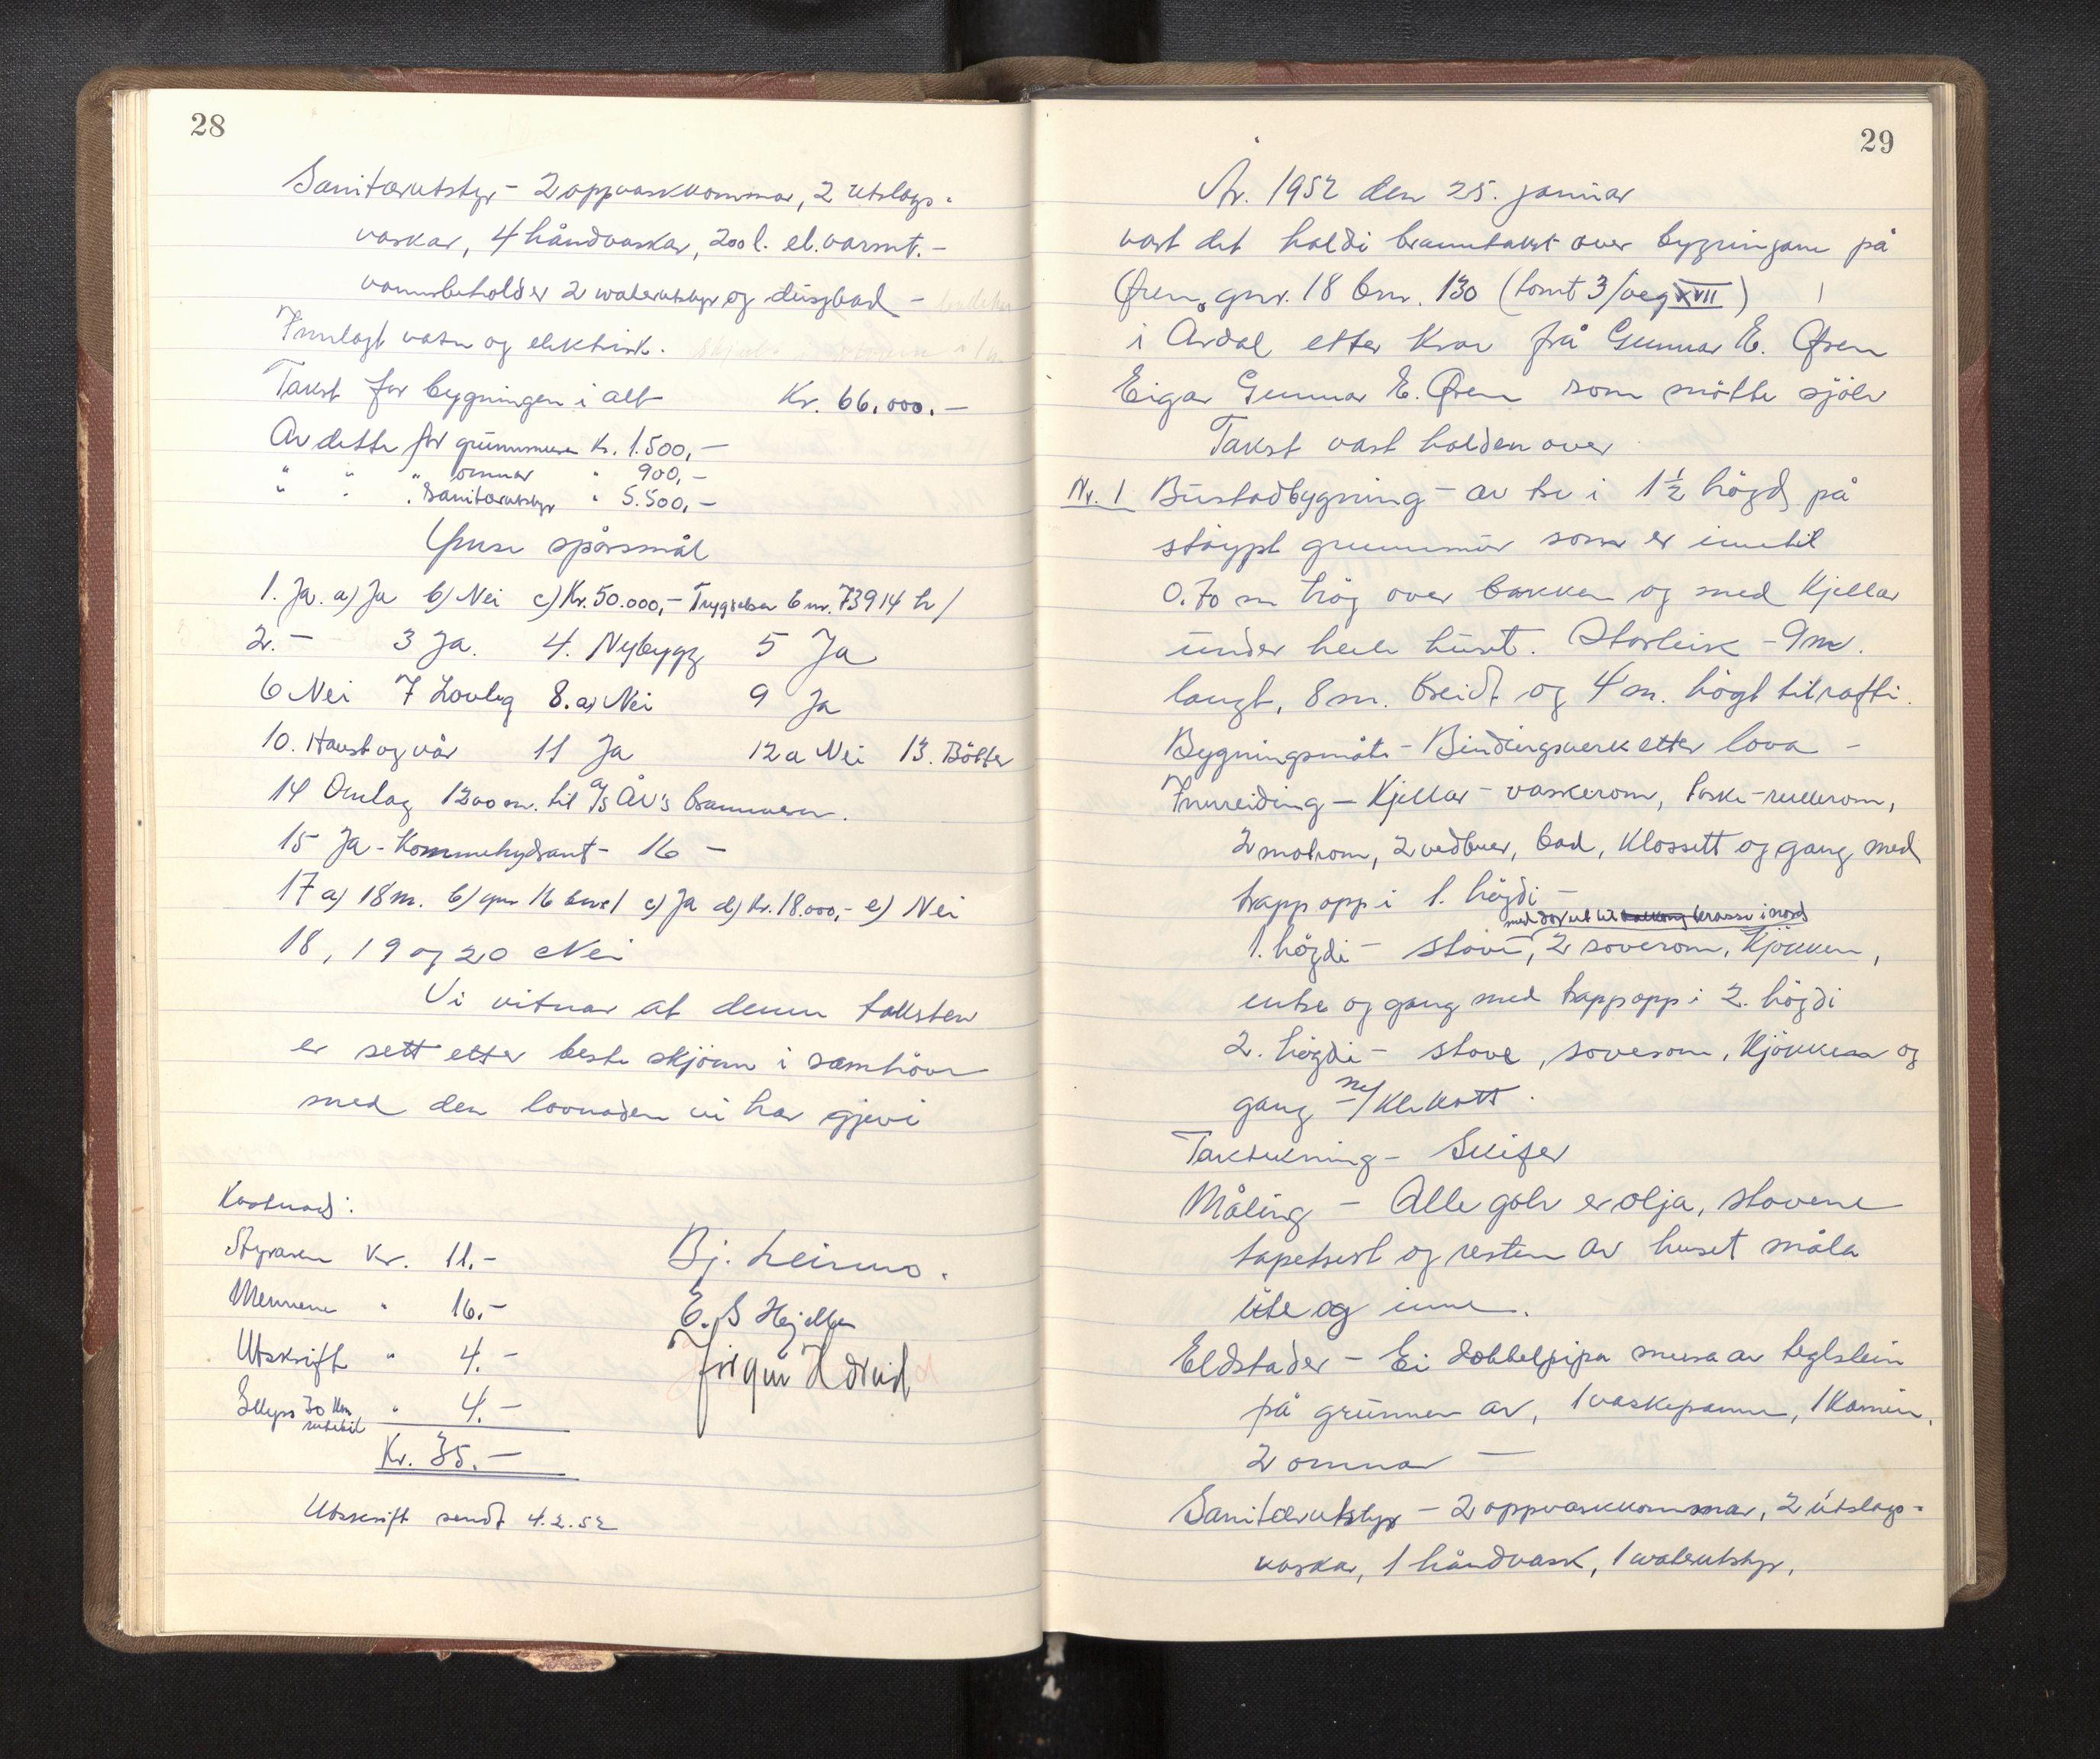 28
Sanitærutstyr - 2 oppvaskkommar, 2 utslags-
vaskar, 4 håndvaskar, 200 l. el. varmt.-
vannsbeholder 2 waterutstyr og dusjbad -
Innlagt vatn og elektrisk.
Takst for bygningen i alt Kr. 66.000.-
Av dette for grunnmuren Kr. 1.500,-
" " " omnar " 900,-
" " " Sanitærutstyr " 5.500,-
Ymse spørsmål
1. Ja. a) Ja b) Nei c) Kr. 50.000,- Trygdelaa b nr. 73914 h/
2. - 3 Ja. 4. Nybygg 5 Ja
6 Nei 7 Lovleg 8. a) Nei 9 Ja
10. Haust og vår 11 Ja 12 a Nei 13. Bötter
14 Omlag 1200 m. til a/s ÅV's brannvern.
15 Ja - Kommehydrant - 16 -
17 a) 18 m. b) gnr 16 bnr 1 c) Ja d) Kr. 18.000,- e) Nei
18, 19 og 20 Nei
Vi vitnar at denne taksten
er sett etter beste skjönn i samhöve
med den lovnaden vi har gjevi
Kostnad:
Styraren Kr. 11.- Bj. Leirmo.
Mennene " 16.- E. S Hjelle
Utskrift " 4.-
Skyss 30 km " 4.-
rutebil
Kr. 35.-
Utskrift sendt 4.2.52
29
År. 1952 den 25. januar
vart det haldi branntakst over bygningane på
Øren, gnr. 18 bnr. 130 (tomt 3/veg XVII)
i Årdal etter krav frå Gunnar E. Øren
Eigar Gunnar E. Øren som mötte sjölv
Takst vart halden over
Nr. 1 Bustadbygning - av tre i 1½ högd på
stöypt grunnmur som er inntil
0.70 m hög over bakken og med Kjellar
under heile huset. Storleik - 9 m.
langt, 8 m. breidt og 4 m. högt til rafti.
Bygningsmåte - Bindingsverk etter lova -
Innreiding - Kjellar - vaskerom, törke-rullerom,
2 matrom, 2 vedbuer, bad, klossett og gang med
trapp opp i 1. högdi -
med dör ut til balkong terasse i nord
1. högdi - stove, 2 soverom, Kjökken,
entre og gang med trapp opp i 2. högdi
2. högdi - stove, soverom, Kjökken og
gang m/ kle kott.
Taktekning - Skifer
Måling - Alle golv er olja, stovene
tapetsert og resten av huset måla
ute og inne.
Eldstader - Ei dobbelpipa mura av teglstein
på grunnen av, 1 vaskepanne, 1 Kamin,
2 omnar -
Sanitærutstyr - 2 oppvaskkommar, 2 utslags-
vaskar, 1 håndvask, 1 waterutstyr,